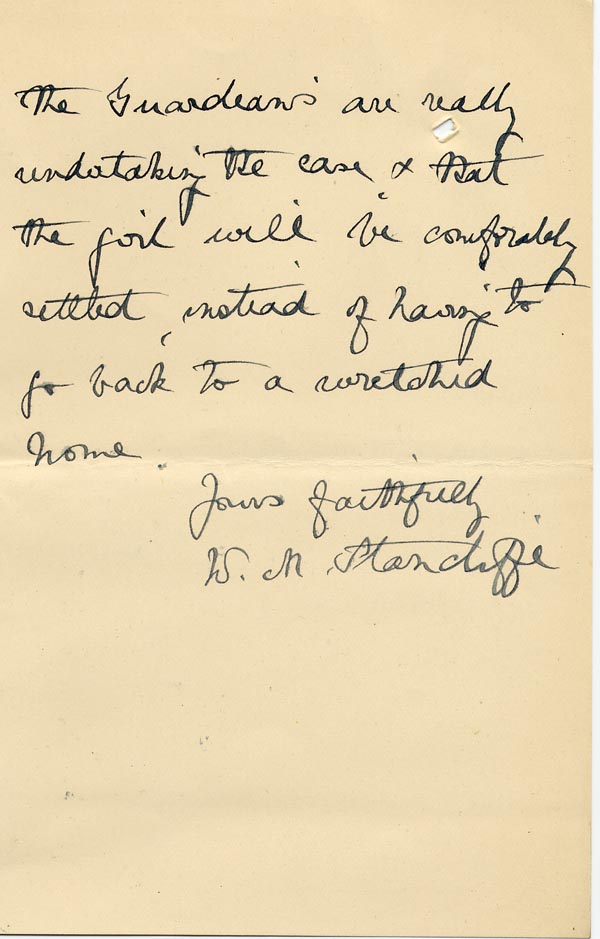 the Guardians are really
undertaking the case & that
the girl will be comfortably
settled, instead of having to
go back to a wretched
home.
Yours faithfully
W. M. Stancliffe